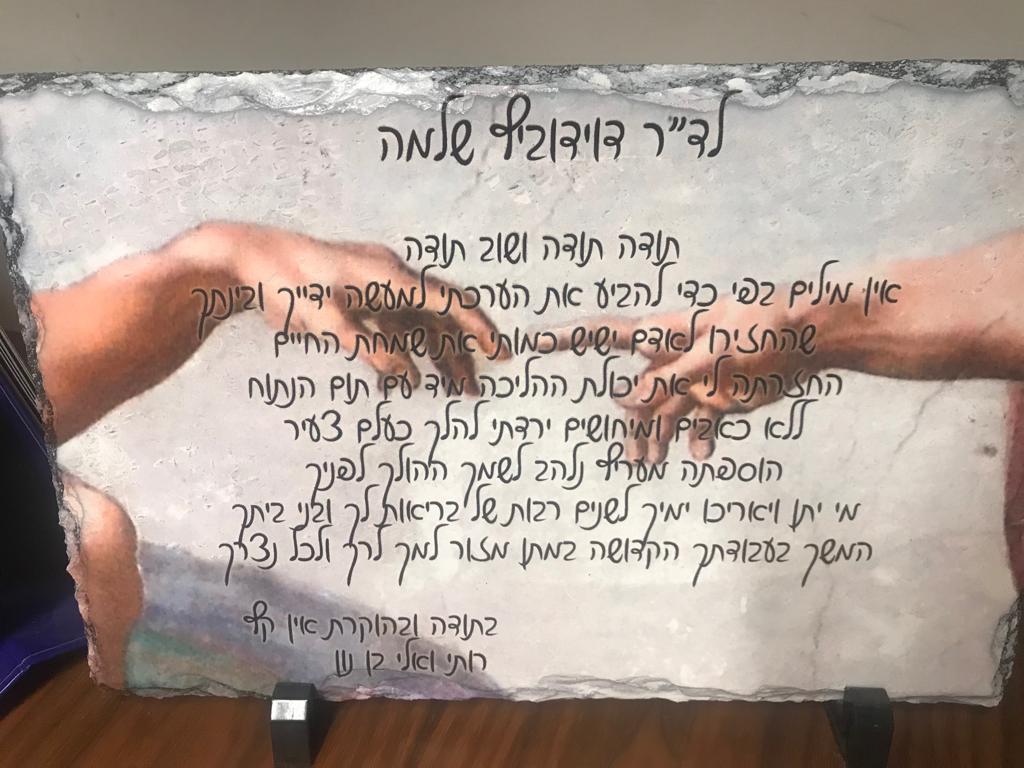 לד"ר דוידוביץ שלמה
תודה תודה ושוב תודה
אין מילים בפי כדי להביע את הערכתי למעשה ידייך ובינתך
שהחזירו לאדם ישיש כמותי את שמחת החיים
החזרתה לי את יכולת ההליכה מיד עם תום הנתוח
ללא כאבים ומיחושים ירדתי להלך כעלם צעיר
הוספתה מעריץ נלהב לשמך ההולך לפניך
מי יתן ויאריכו ימיך לשנים רבות של בריאות לך ובני ביתך
המשך בעבודתך הקדושה במתן מזור למך לרך ולכל נצרך
בתודה ובהוקרת אין קץ
רותי ואלי בן נון